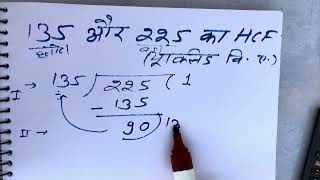 135 और 225 का HCF
छोटा बड़ा (यूक्लिड वि. ए.)
I → 135) 225 (1
- 135
II → 90) 13